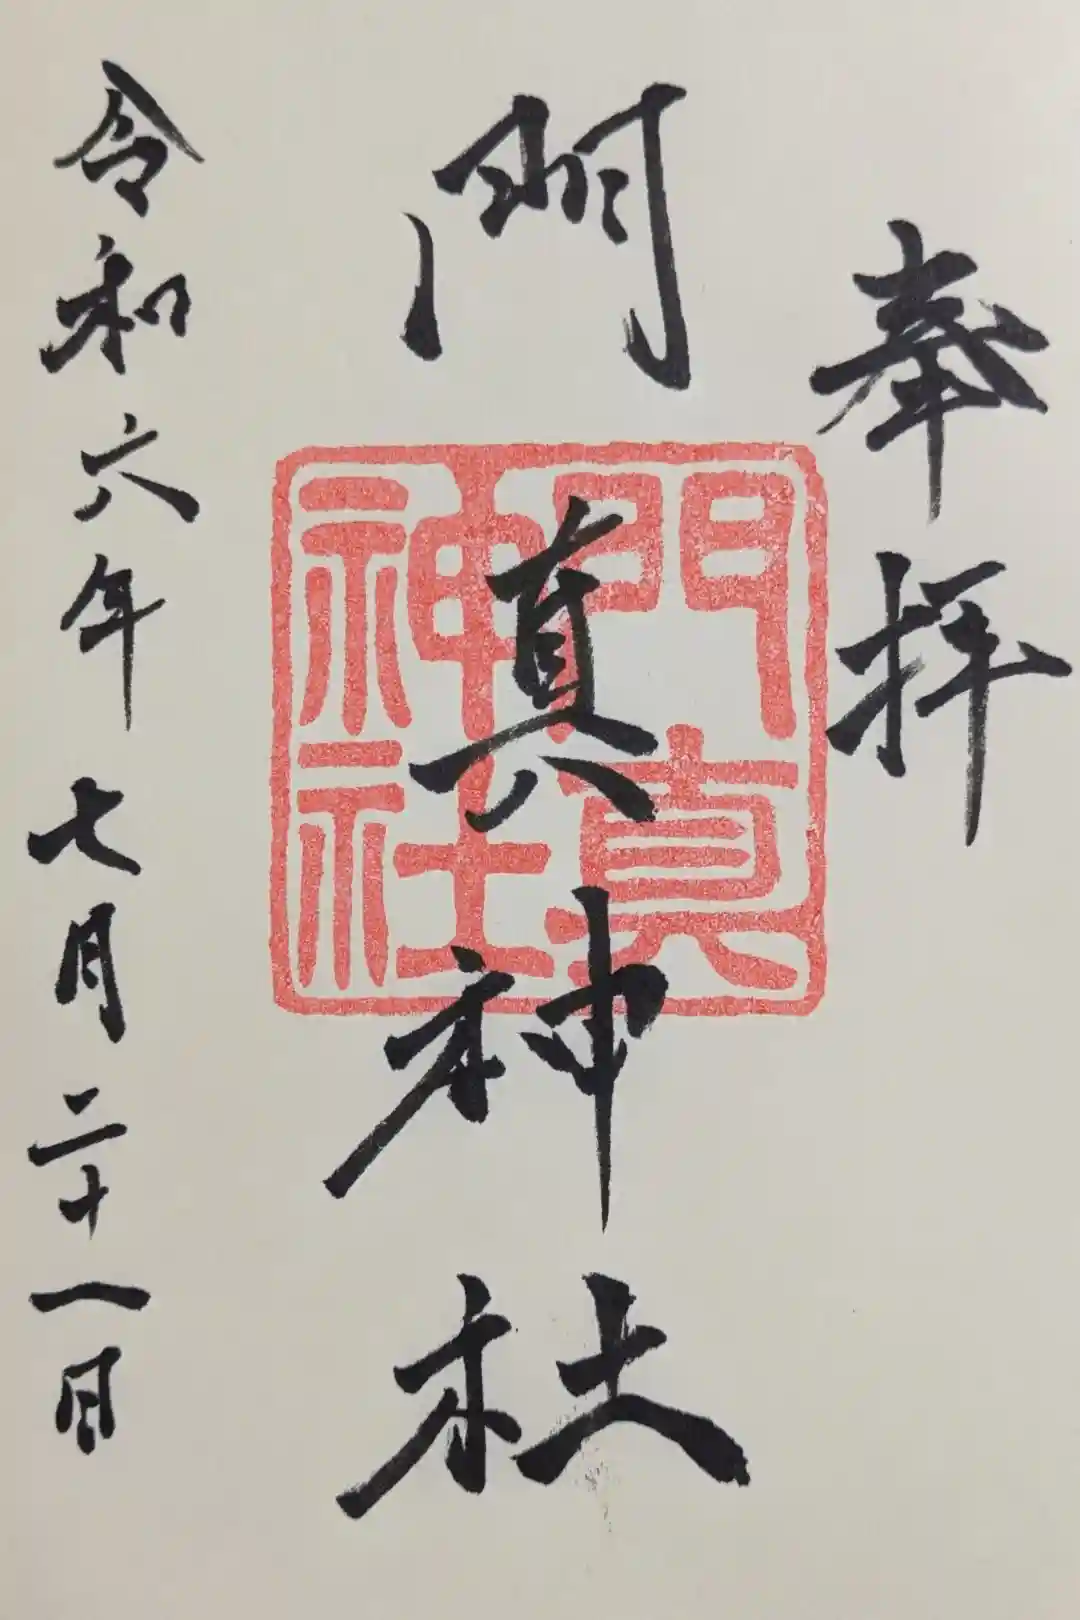 奉拝
門真神社
門真
神社
令和六年七月二十一日